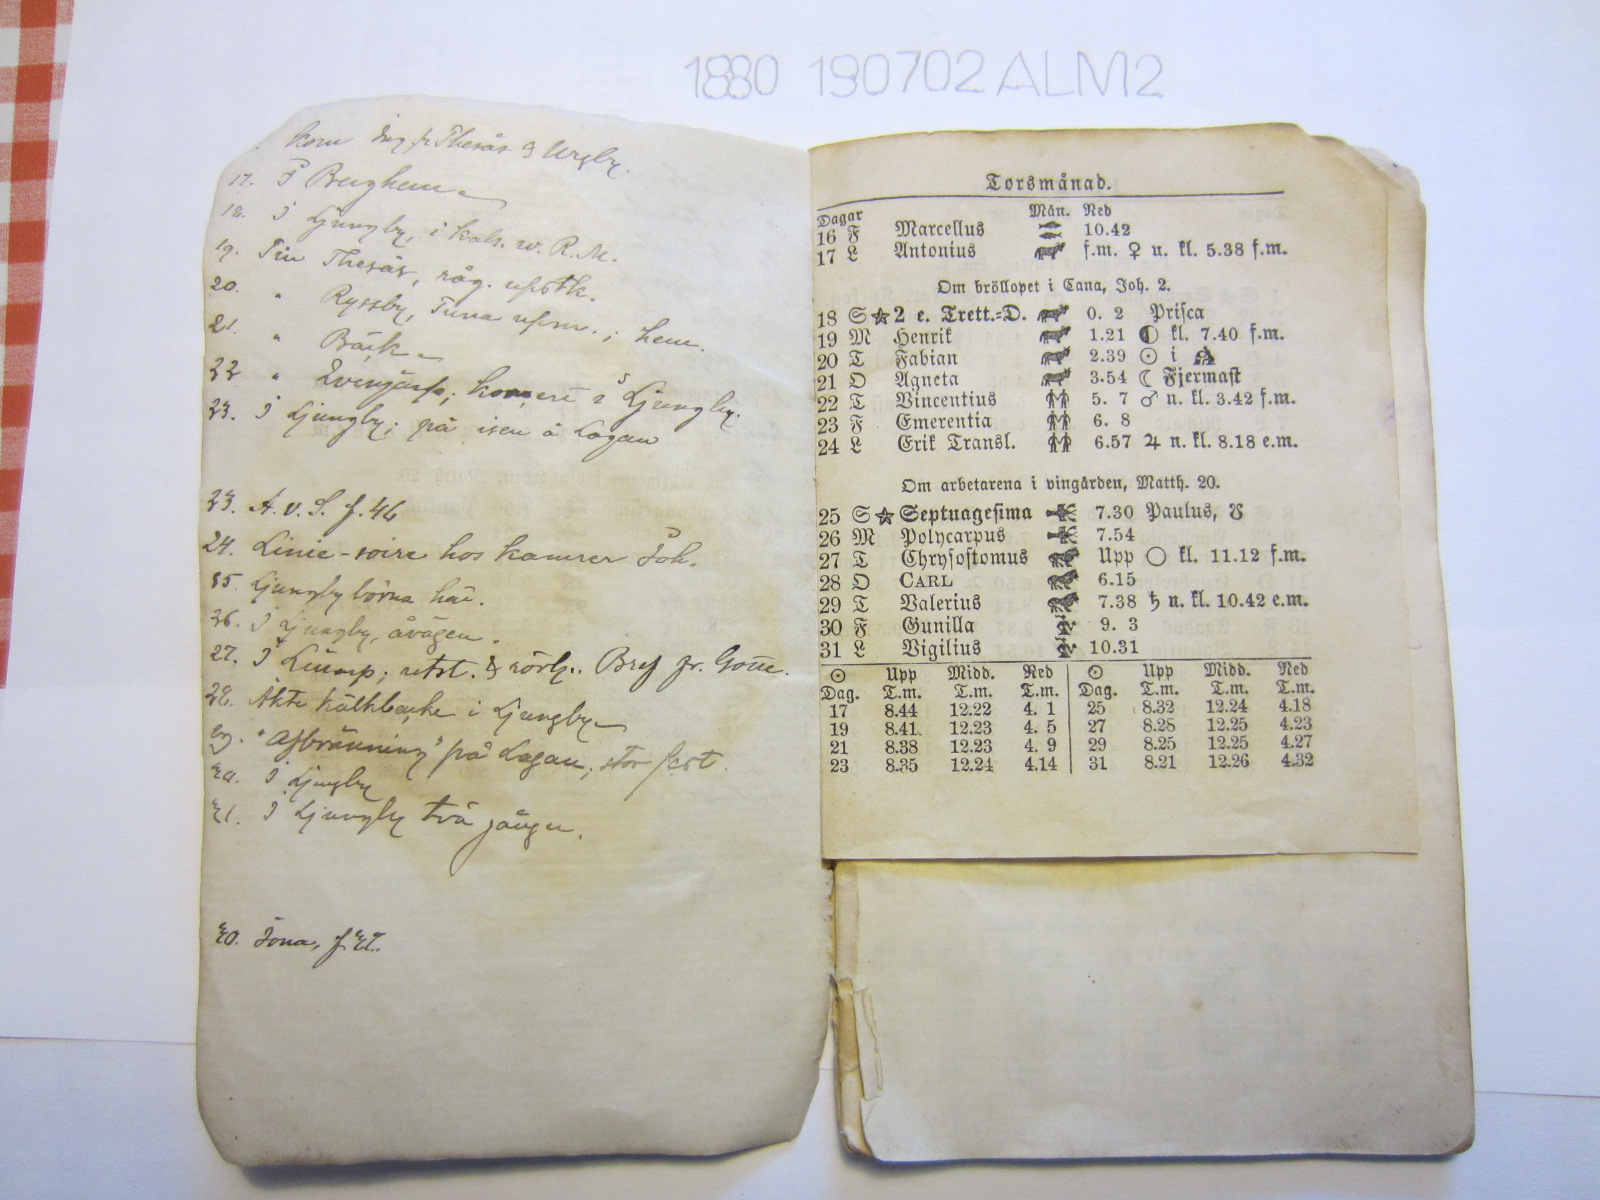 1880 190702 ALM2
kom
17. I Berghem
18. I Ljungby, i kals. w. R.M.
19. Thesås, råg.
20. " Ryssby, Tuna ; hem.
21. " Bäck
22 " ; Ljungby.
23. I Ljungby; på isen å Lagan
23. A. v. S. f. 46
24. Linie-soire hos kamrer Joh.
25. Ljungbyborna här.
26. I Ljungby, åvägen.
27. I ; & Bref fr.
28. Åkte kälkbacke i Ljungby
29. "Afbränning" på Lagan; stor fest.
30. I Ljungby
31. I Ljungby två gånger.
30. Jona, f.
Torsmånad.
Dagar Mån. Ned
16 F Marcellus 10.42
17 L Antonius f.m. ♀ u. kl. 5.38 f.m.
Om bröllopet i Cana, Joh. 2.
18 S ☆ 2 e. Trett.=D. 0. 2 Prisca
19 M Henrik 1.21 ◐ kl. 7.40 f.m.
20 T Fabian 2.39 ☉ i
21 O Agneta 3.54 ☾ Fjermast
22 T Vincentius 5. 7 ♂ n. kl. 3.42 f.m.
23 F Emerentia 6. 8
24 L Erik Transl. 6.57 ♃ n. kl. 8.18 e.m.
Om arbetarena i vingården, Matth. 20.
25 S ☆ Septuagesima 7.30 Paulus, ☋
26 M Polycarpus 7.54
27 T Chrysostomus Upp ○ kl. 11.12 f.m.
28 O CARL 6.15
29 T Valerius 7.38 ♄ n. kl. 10.42 e.m.
30 F Gunilla 9. 3
31 L Vigilius 10.31
☉ Upp Midd. Ned ☉ Upp Midd. Ned
Dag. T.m. T.m. T.m. Dag. T.m. T.m. T.m.
17 8.44 12.22 4. 1 25 8.32 12.24 4.18
19 8.41 12.23 4. 5 27 8.28 12.25 4.23
21 8.38 12.23 4. 9 29 8.25 12.25 4.27
23 8.35 12.24 4.14 31 8.21 12.26 4.32